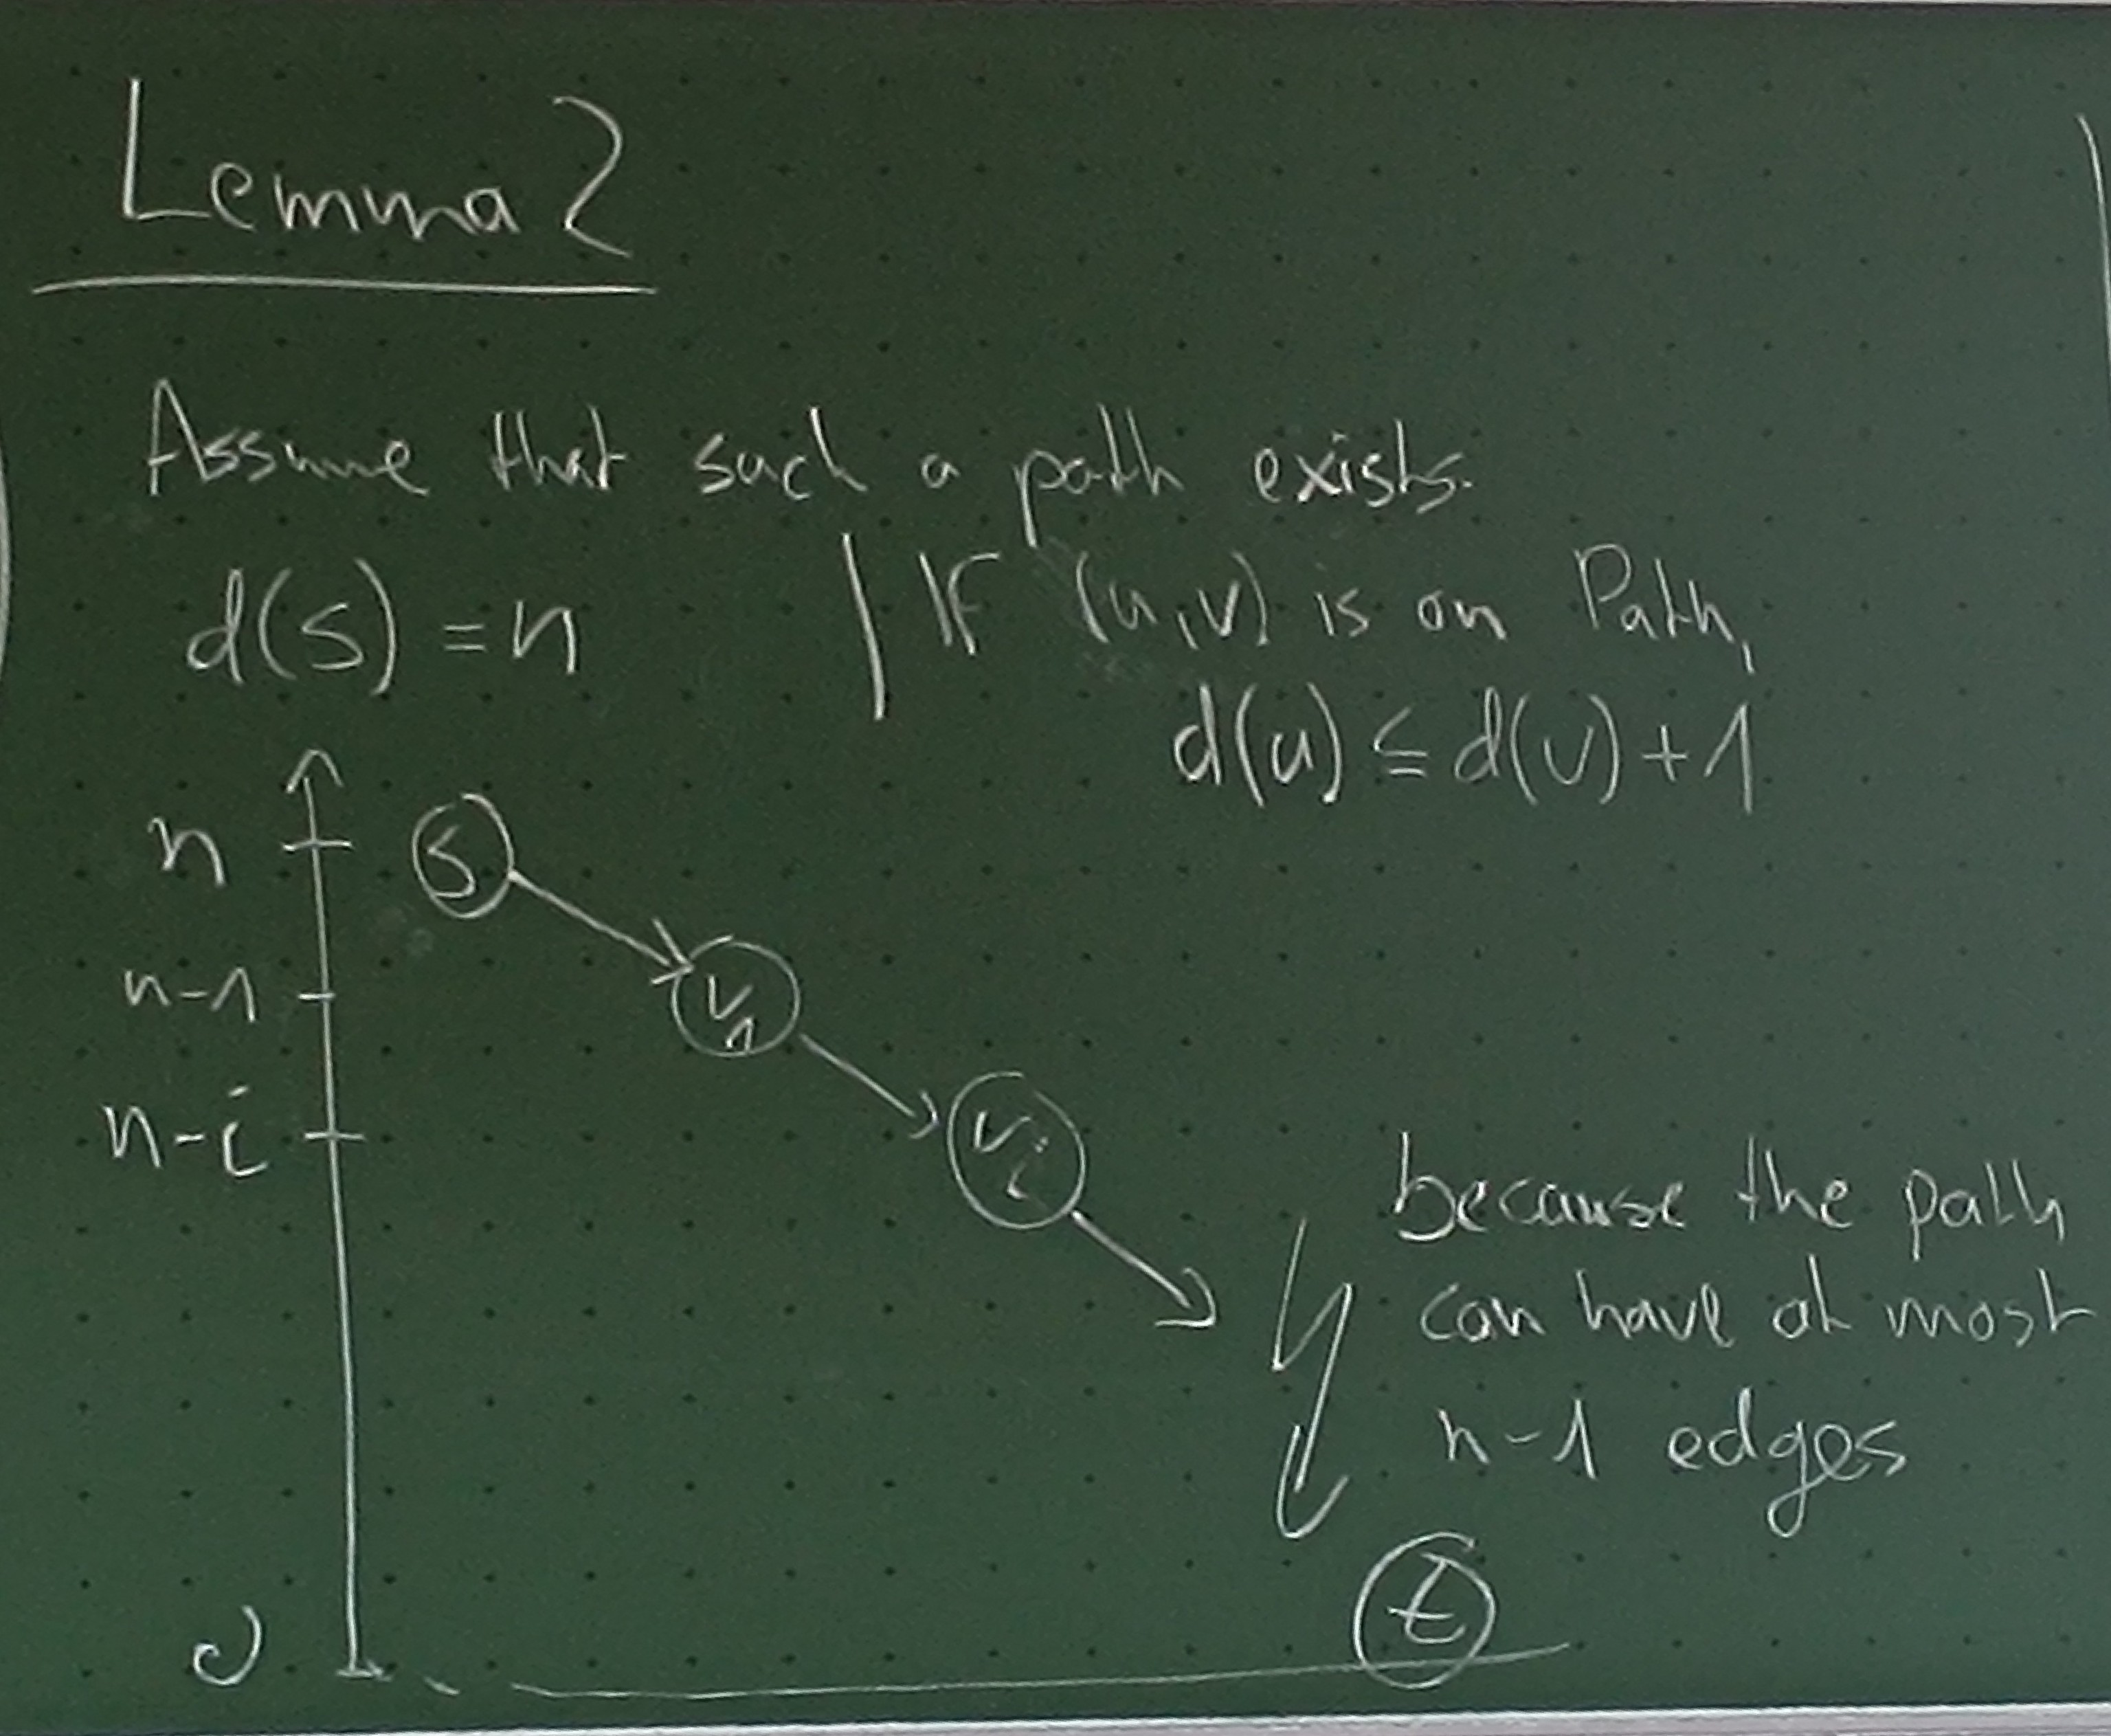 Lemma 2
Assume that such a path exists.
d(s) = n | If (u,v) is on Path,
d(u) ≤ d(v) + 1
n
s
n-1
v₁
n-i
vᵢ
because the path
can have at most
n-1 edges
t
0